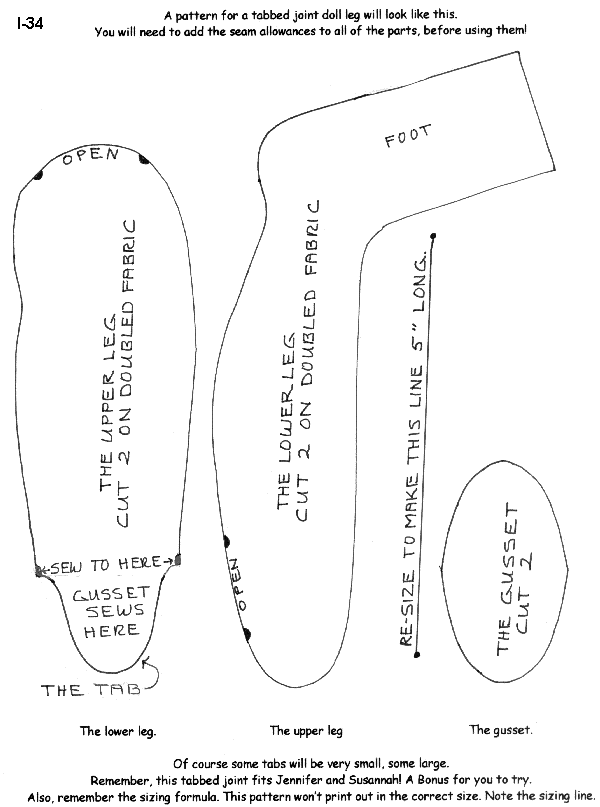 I-34
A pattern for a tabbed joint doll leg will look like this.
You will need to add the seam allowances to all of the parts, before using them!
OPEN
THE UPPER LEG
CUT 2 ON DOUBLED FABRIC
SEW TO HERE
GUSSET
SEWS
HERE
THE TAB
FOOT
THE LOWER LEG
CUT 2 ON DOUBLED FABRIC
OPEN
RE-SIZE TO MAKE THIS LINE 5" LONG.
THE GUSSET
CUT 2
The lower leg.
The upper leg
The gusset.
Of course some tabs will be very small, some large.
Remember, this tabbed joint fits Jennifer and Susannah! A Bonus for you to try.
Also, remember the sizing formula. This pattern won't print out in the correct size. Note the sizing line.